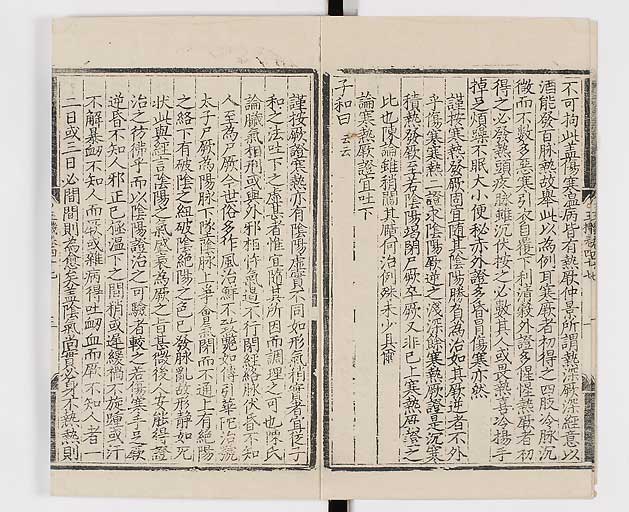 不可拘此蓋傷寒溫病皆有熱厥仲景所謂熱深厥深經意以
酒能發百脉熱故舉此以為例耳寒厥者初得之四肢冷脉沉
微而不數多惡寒引衣自覆下利清穀外證多惺惺熱厥者初
得之必發熱頭疼脉雖沉伏按之必數其人或畏熱喜冷揚手
掉足煩躁不眠大小便秘赤外證多昏冒傷寒亦然
謹按寒熱發厥固宜隨其陰陽勝負為治如其厥逆者不外
乎傷寒寒熱二證求陰陽厥逆之淺深餘寒熱厥證是沉寒
積熱發厥至若陰陽竭閉尸厥卒厥又非已上寒熱厥證之
比也陳論雖稍闊其臍何治例殊未少具爾
論寒熱厥證宜吐下
子和曰云云
謹按厥證寒熱亦有陰陽虛實不同如形氣稍實者宜從子
和之法吐下之虛甚者惟宜隨其所因而調理之可也陳氏
論臟氣相刑或與外邪相忤氣遏不行閉經絡脉伏昏不知
人至為尸厥今世俗多作風治鮮不致斃如傳引華陀治虢
太子尸厥為陽脉下墜陰脉上爭會氣閉而不通上有絕陽
之絡下有破陰之紐破陰絕陽之色已發脉亂故厥靜如死
狀此與經言陰陽之氣感氣為厥之旨甚微後人安能得證
治之彷彿乎而以陰陽證治之可驗者較之若傷寒手足厥
逆昏不知人邪正已極溫下之間稍或遲緩禍不旋踵或汗
不解暴衂不知人而厥或雜病得吐衂血而厥不知人者一
二日或三日必間間則為愈矣蓋陰氣尚實必身不熱熱則